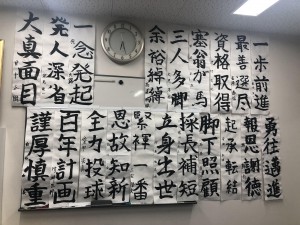 一歩前進
最善選尽
資格取得
塞翁が馬
三人多脚
余裕綽綽
一念発起
発人深省
大真面目
勇往邁進
報恩謝徳
起承転結
脚下照顧
採長補短
立身出世
緊褌一番
温故知新
全力投球
百年計画
謹厚慎重